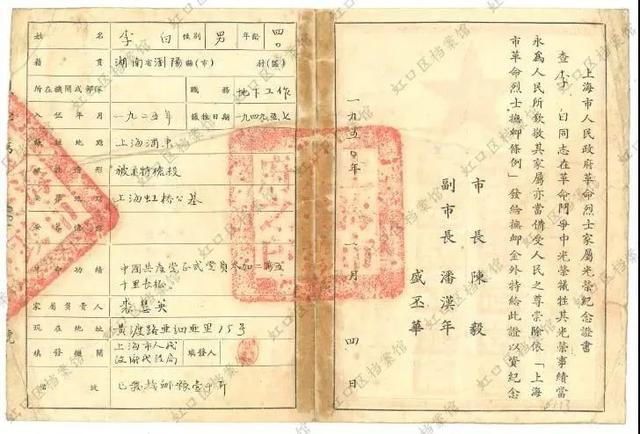 上海市人民政府革命烈士家屬光榮紀念證書
查李白同志在革命鬥爭中光榮犧牲其光榮事績當
永為人民所欽敬其家屬亦當備受人民之尊崇除依「上海
市革命烈士撫卹條例」發給撫卹金外特給此證以資紀念
市長陳毅
副市長潘漢年
盛丕華
一九五〇年 月四日
姓名 李白 性別 男 年齡 四〇
籍貫 湖南省瀏陽縣(市) 村(區)
所在機關或部隊 職務 地下工作
入伍年月 一九二五年 犧牲日期 一九四九、五、七
犧牲地點 上海浦東
被蔣特槍殺
上海虹橋公墓
功績 中國共產党正式党員参加二萬五
千里長征
家屬負責人 裘慧英
現在地址 黄渡路亚細亚里15号
填發機關 上海市人民政府民政局 填發人
虹口区档案馆